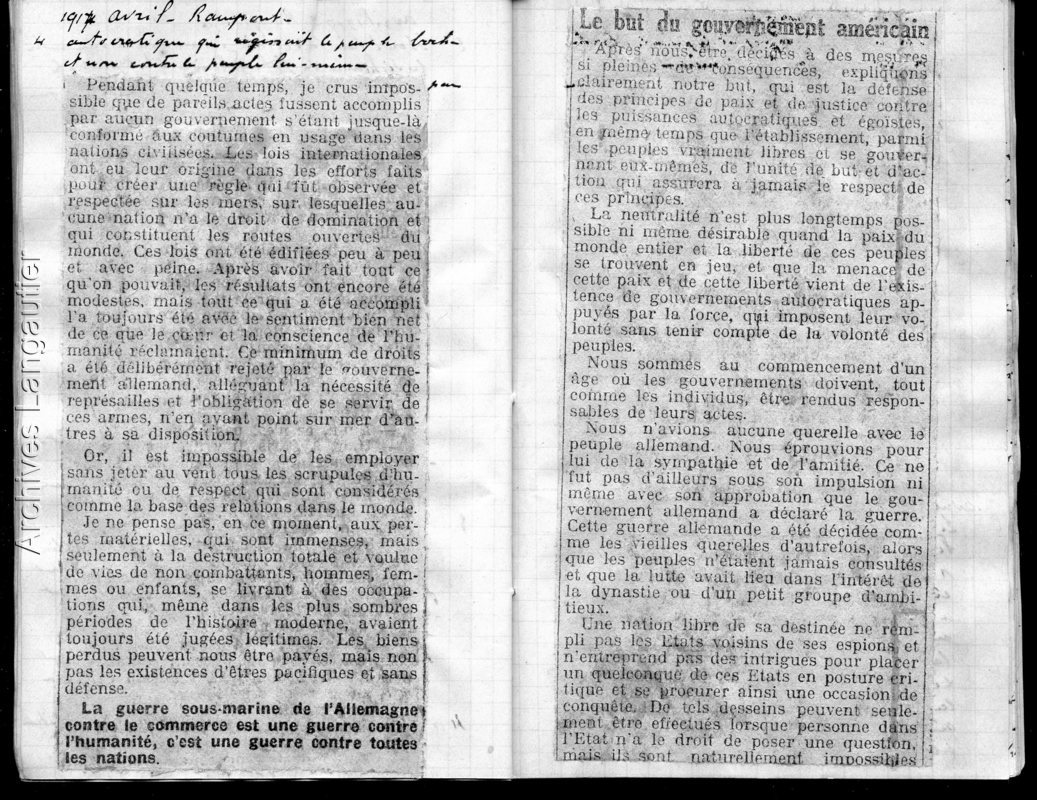 1917 avril - Rampont -
autocratique qui régissait le peuple
et non contre le peuple lui-même
Pendant quelque temps, je crus impos-
sible que de pareils actes fussent accomplis
par aucun gouvernement s'étant jusque-là
conformé aux coutumes en usage dans les
nations civilisées. Les lois internationales
ont eu leur origine dans les efforts faits
pour créer une règle qui fût observée et
respectée sur les mers, sur lesquelles au-
cune nation n'a le droit de domination et
qui constituent les routes ouvertes du
monde. Ces lois ont été édifiées peu à peu
et avec peine. Après avoir fait tout ce
qu'on pouvait, les résultats ont encore été
modestes, mais tout ce qui a été accompli
l'a toujours été avec le sentiment bien net
de ce que le cœur et la conscience de l'hu-
manité réclamaient. Ce minimum de droits
a été délibérément rejeté par le gouverne-
ment allemand, alléguant la nécessité de
représailles et l'obligation de se servir de
ces armes, n'en ayant point sur mer d'au-
tres à sa disposition.
Or, il est impossible de les employer
sans jeter au vent tous les scrupules d'hu-
manité ou de respect qui sont considérés
comme la base des relations dans le monde.
Je ne pense pas, en ce moment, aux per-
tes matérielles, qui sont immenses, mais
seulement à la destruction totale et voulue
de vies de non combattants, hommes, fem-
mes ou enfants, se livrant à des occupa-
tions qui, même dans les plus sombres
périodes de l'histoire moderne, avaient
toujours été jugées légitimes. Les biens
perdus peuvent nous être payés, mais non
pas les existences d'êtres pacifiques et sans
défense.
La guerre sous-marine de l'Allemagne
contre le commerce est une guerre contre
l'humanité, c'est une guerre contre toutes
les nations.
Archives Langautier
Le but du gouvernement américain
Après nous être décidés à des mesures
si pleines de conséquences, expliquons
clairement notre but, qui est la défense
des principes de paix et de justice contre
les puissances autocratiques et égoïstes,
en même temps que l'établissement, parmi
les peuples vraiment libres et se gouver-
nant eux-mêmes, de l'unité de but et d'ac-
tion qui assurera à jamais le respect de
ces principes.
La neutralité n'est plus longtemps pos-
sible ni même désirable quand la paix du
monde entier et la liberté de ces peuples
se trouvent en jeu, et que la menace de
cette paix et de cette liberté vient de l'exis-
tence de gouvernements autocratiques ap-
puyés par la force, qui imposent leur vo-
lonté sans tenir compte de la volonté des
peuples.
Nous sommes au commencement d'un
âge où les gouvernements doivent, tout
comme les individus, être rendus respon-
sables de leurs actes.
Nous n'avions aucune querelle avec le
peuple allemand. Nous éprouvions pour
lui de la sympathie et de l'amitié. Ce ne
fut pas d'ailleurs sous son impulsion ni
même avec son approbation que le gou-
vernement allemand a déclaré la guerre.
Cette guerre allemande a été décidée com-
me les vieilles querelles d'autrefois, alors
que les peuples n'étaient jamais consultés
et que la lutte avait lieu dans l'intérêt de
la dynastie ou d'un petit groupe d'ambi-
tieux.
Une nation libre de sa destinée ne rem-
pli pas les Etats voisins de ses espions et
n'entreprend pas des intrigues pour placer
un quelconque de ces Etats en posture cri-
tique et se procurer ainsi une occasion de
conquête. De tels desseins peuvent seule-
ment être effectués lorsque personne dans
l'Etat n'a le droit de poser une question,
mais ils sont naturellement impossibles